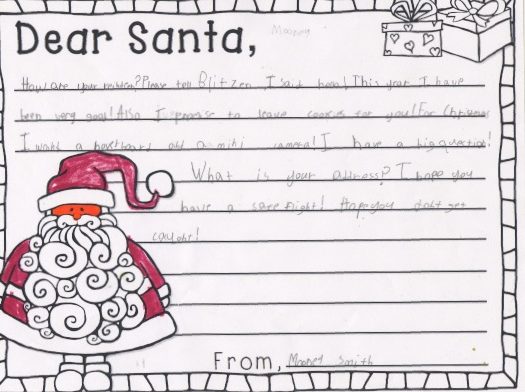 Dear Santa,
Mooney
How are your reindeer? Please tell Blitzen I said helo! This year I have
been very good! Also I promise to leave cookies for you! For Christmas
I want a hoverboard and a mini camera! I have a big question!
What is your address? I hope you
have a safe flight! Hope you don't get
caught!
From, Mooney Smith